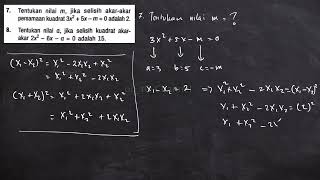 7. Tentukan nilai m, jika selisih akar-akar
persamaan kuadrat 3x² + 5x − m = 0 adalah 2.
8. Tentukan nilai a, jika selisih kuadrat akar-
akar 2x² − 6x − a = 0 adalah 15.
(x₁-x₂)² = x₁² - 2x₁x₂ + x₂²
= x₁² + x₂² - 2x₁x₂
(x₁+x₂)² = x₁² + 2x₁x₂ + x₂²
= x₁² + x₂² + 2x₁x₂
7. Tentukan nilai m = ?
3x² + 5x - m = 0
a=3 b=5 c=-m
x₁ - x₂ = 2 ⇒ x₁² + x₂² - 2x₁x₂ = (x₁-x₂)²
x₁² + x₂² - 2x₁x₂ = (2)²
x₁ + x₂² - 2